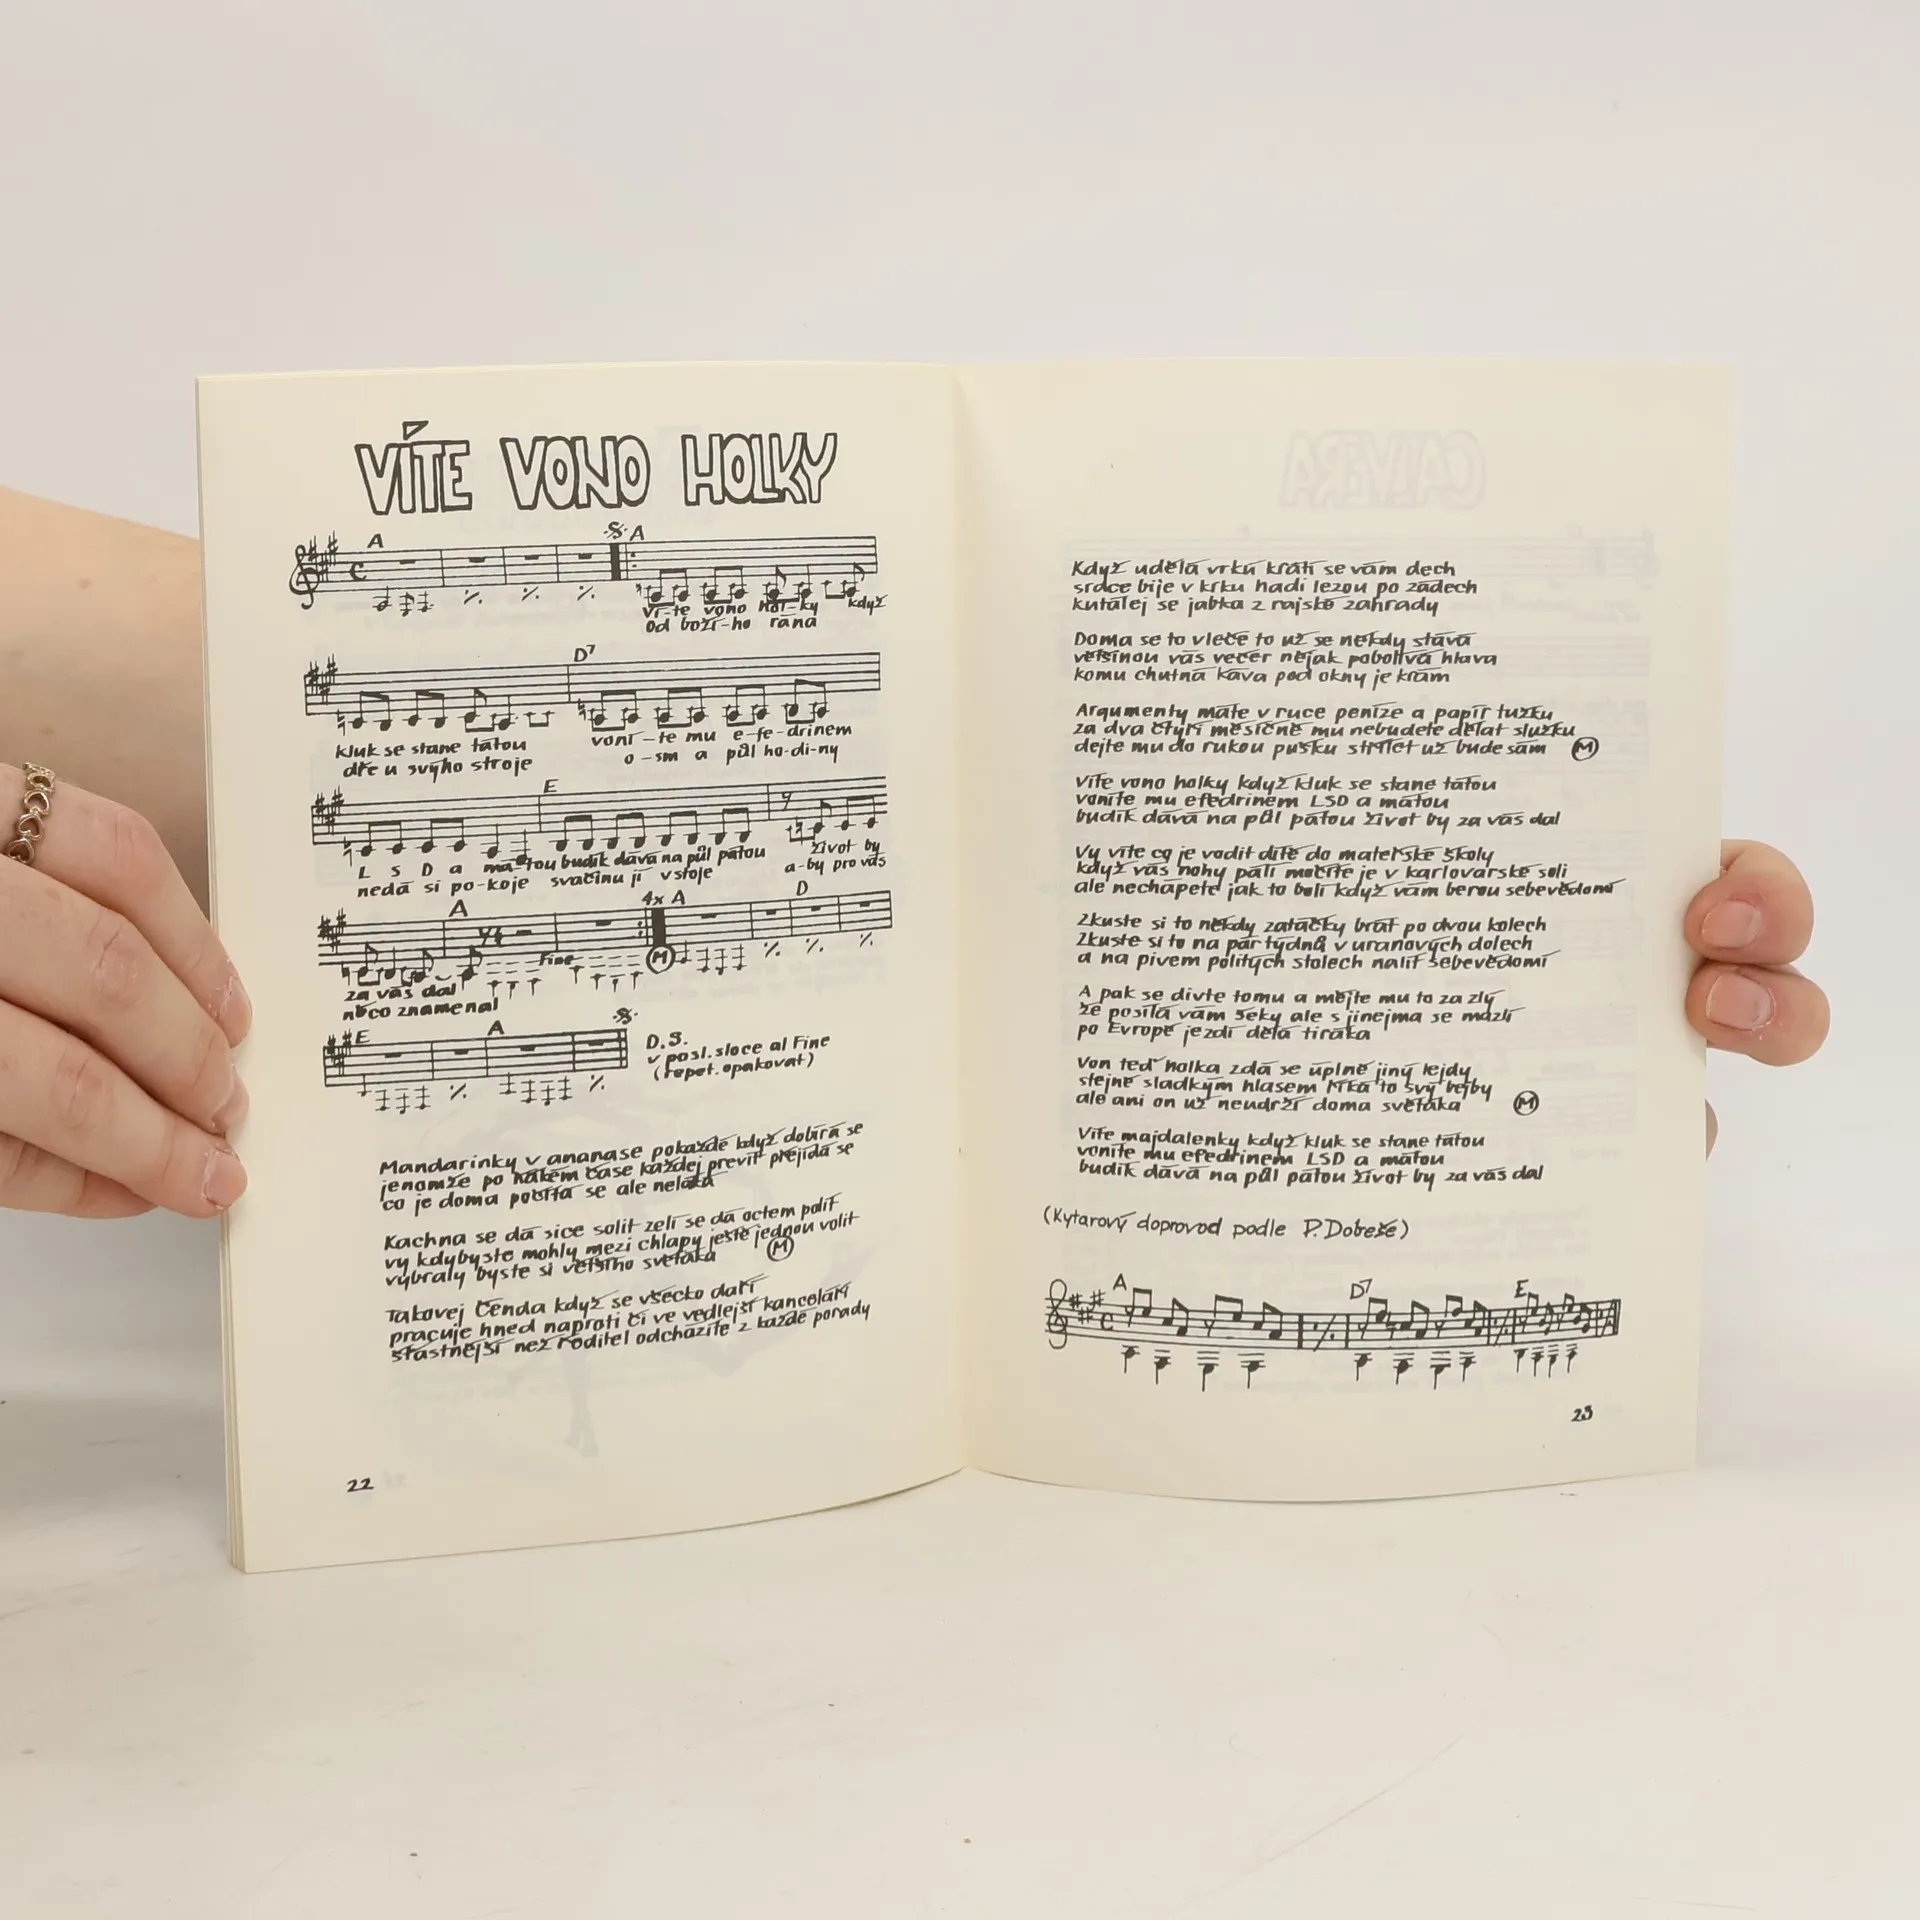 VÍTE VONO HOLKY
A A
Ví-te vono hol-ky když
Od boží-ho rána
D7
kluk se stane tátou voní-te mu e-fe-drinem
dře u svýho stroje o-sm a půl ho-di-ny
E
L S D a má-tou budík dává na půl pátou život by
nedá si po-koje svačinu jí vstoje a-by pro vás
A 4x A D
Fine M
za vás dal
něco znamenal
E A
D.S.
v posl. sloce al Fine
(repet. opakovat)
Mandarinky v ananase pokaždé když dobírá se
jenomže po nákém čase každej previt přejídá se
co je doma počítá se ale neláká
Kachna se dá sice solit zelí se dá octem polít
vy kdybyste mohly mezi chlapy ještě jednou volit
vybraly byste si většího světáka M
Takovej Čenda když se všecko daří
pracuje hned naproti či ve vedlejší kanceláři
šťastnější než ředitel odcházíte z každé porady
22
Když udělá vrkú krátí se vám dech
srdce bije v krku hadi lezou po zádech
kutálej se jabka z rajské zahrady
Doma se to vleče to už se někdy stává
většinou vás večer nějak pobolívá hlava
komu chutná káva pod okny je krám
Argumenty máte v ruce peníze a papír tužku
za dva čtyři měsíčně mu nebudete dělat služku
dejte mu do rukou pušku střílet už bude sám M
Víte vono holky když kluk se stane tátou
voníte mu efedrinem LSD a mátou
budík dává na půl pátou život by za vás dal
Vy víte co je vodit dítě do mateřské školy
když vás nohy pálí močíte je v karlovarské soli
ale nechápete jak to bolí když vám berou sebevědomí
Zkuste si to někdy zatáčky brát po dvou kolech
Zkuste si to na pár týdnů v uranových dolech
a na pivem politých stolech nalít sebevědomí
A pak se divte tomu a mějte mu to za zlý
že posílá vám šeky ale s jinejma se mazlí
po Evropě jezdí dělá tiráka
Von teď holka zdá se úplně jiný lejdy
stejně sladkým hlasem říká to svý bejby
ale ani on už neudrží doma světáka M
Víte majdalenky když kluk se stane tátou
voníte mu efedrinem LSD a mátou
budík dává na půl pátou život by za vás dal
(Kytarový doprovod podle P. Dobeše)
A D7 E
23